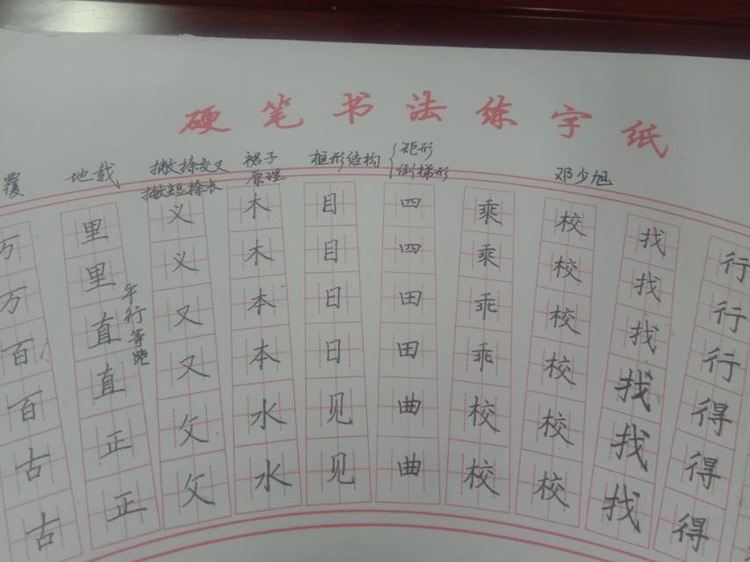 硬笔书法练字纸
覆
地载
撇捺交叉
撇短捺长
裙子
原理
框形结构
矩形
倒梯形
邓少旭
万万百百古古
里里直直正正
平行等距
义义又又攵攵
木木本本水水
目目日日见见
四四田田曲曲
乘乘乖乖校校
校校校校校校
找找找找找找
行行行得得得